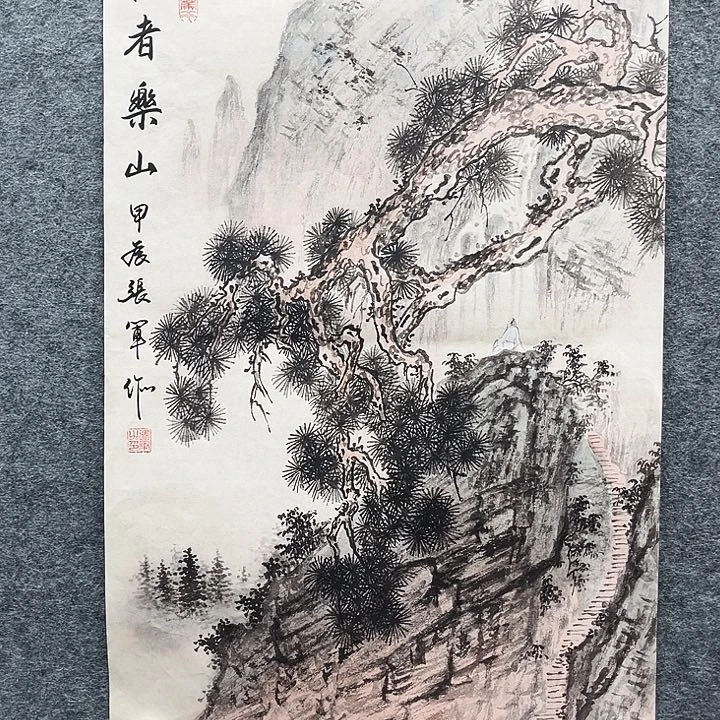 者樂山
甲辰張軍作